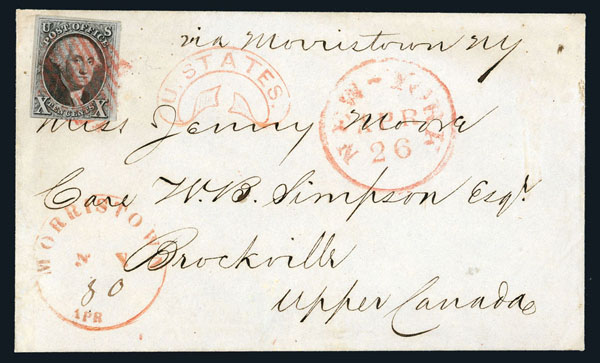 U S
POST OFFICE
X TEN CENTS X
via Morristown NY
U. STATES.
NEW-YORK
APR
26
Miss Jenny Moore
Care W. B. Simpson Esqr.
MORRISTOWN
N Y
30
APR
Brockville
Upper Canada